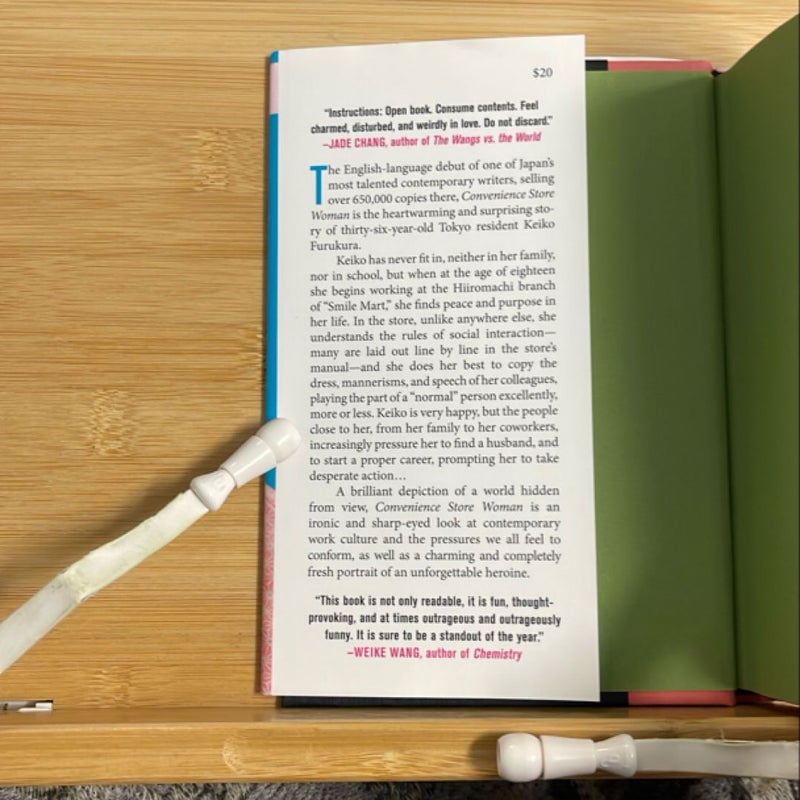 $20
"Instructions: Open book. Consume contents. Feel
charmed, disturbed, and weirdly in love. Do not discard."
–JADE CHANG, author of The Wangs vs. the World
The English-language debut of one of Japan's
most talented contemporary writers, selling
over 650,000 copies there, Convenience Store
Woman is the heartwarming and surprising sto-
ry of thirty-six-year-old Tokyo resident Keiko
Furukura.
Keiko has never fit in, neither in her family,
nor in school, but when at the age of eighteen
she begins working at the Hiiromachi branch
of "Smile Mart," she finds peace and purpose in
her life. In the store, unlike anywhere else, she
understands the rules of social interaction—
many are laid out line by line in the store's
manual—and she does her best to copy the
dress, mannerisms, and speech of her colleagues,
playing the part of a "normal" person excellently,
more or less. Keiko is very happy, but the people
close to her, from her family to her coworkers,
increasingly pressure her to find a husband, and
to start a proper career, prompting her to take
desperate action…
A brilliant depiction of a world hidden
from view, Convenience Store Woman is an
ironic and sharp-eyed look at contemporary
work culture and the pressures we all feel to
conform, as well as a charming and completely
fresh portrait of an unforgettable heroine.
"This book is not only readable, it is fun, thought-
provoking, and at times outrageous and outrageously
funny. It is sure to be a standout of the year."
–WEIKE WANG, author of Chemistry